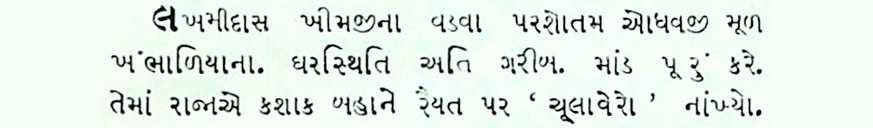 લખમીદાસ ખીમજીના વડવા પરશોતમ ઓધવજી મૂળ
ખંભાળિયાના. ઘરસ્થિતિ અતિ ગરીબ. માંડ પૂરું કરે.
તેમાં રાજાએ કશાક બહાને રૈયત પર ‘ ચૂલાવેરો ’ નાંખ્યો.